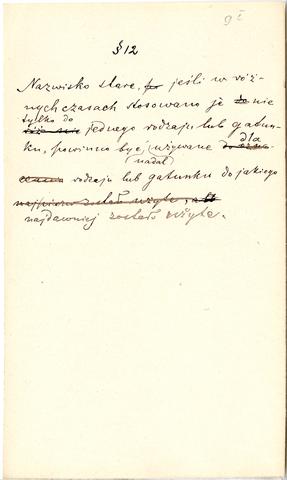 9 I
§ 12
Nazwisko stare, jeśli w róż-
nych czasach stosowano je nie
tylko do
jednego rodzaju lub gatun-
ku, powinno być używane dla
nadal
rodzaju lub gatunku do jakiego
najpierw zostało użyte, a
najdawniej zostało użyte.